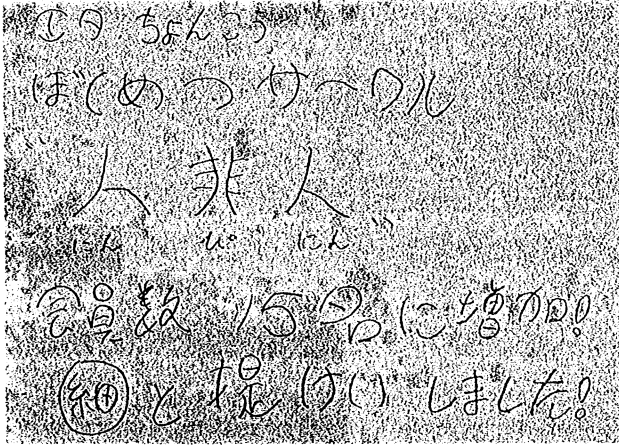 ちょんこう
ぼくめつサークル
人非人
にん ぴ にん
会員数 15名に増加!
細と提けいしました!